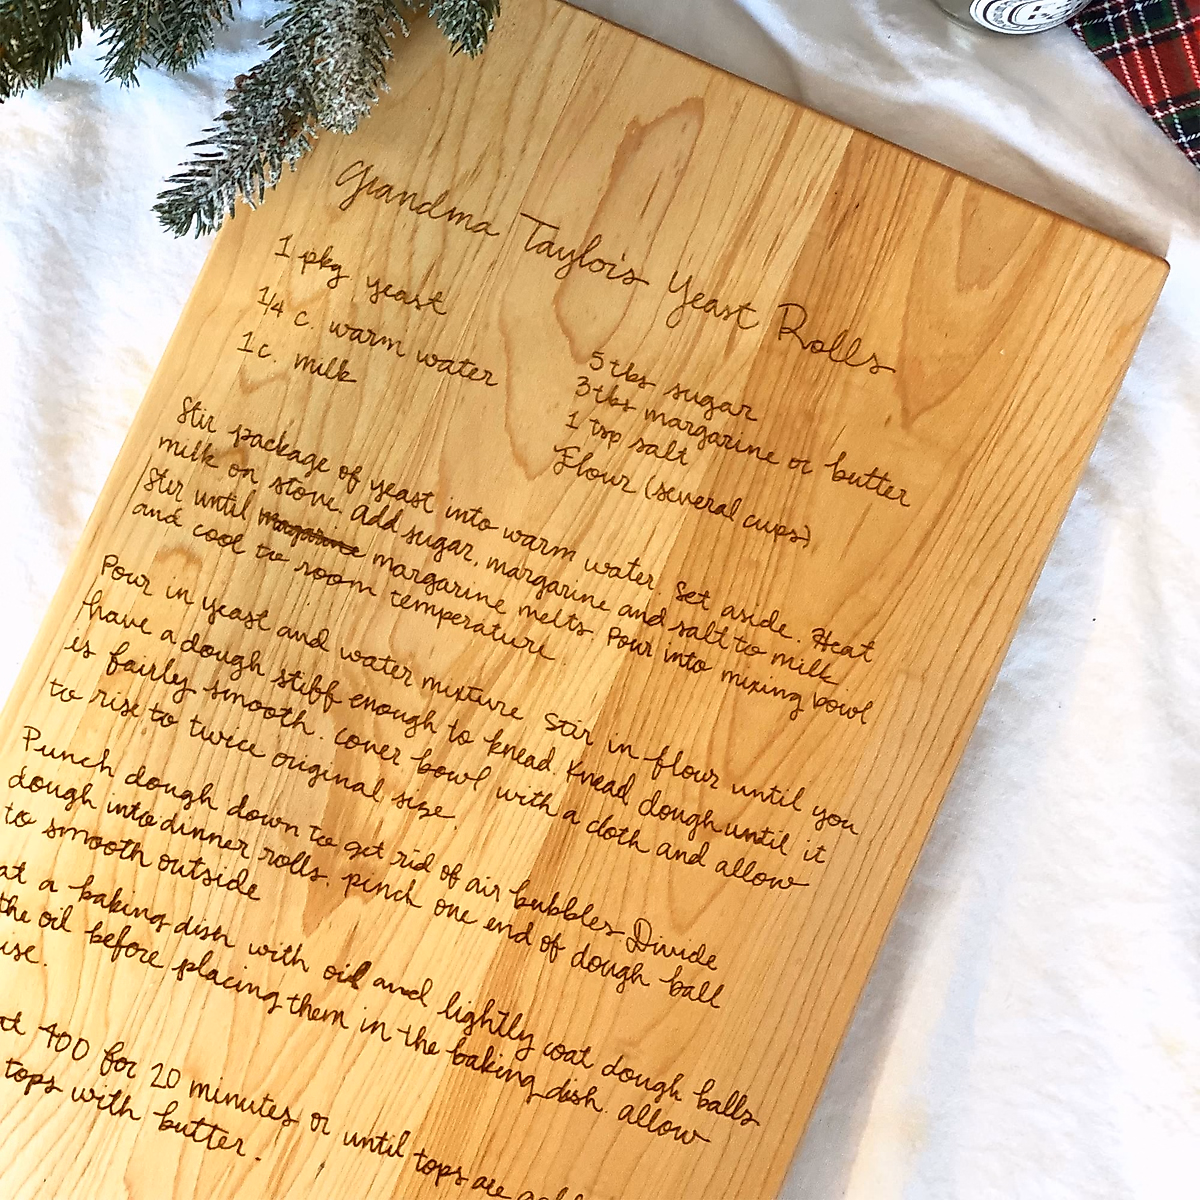 Grandma Taylor's Yeast Rolls
1 pkg yeast
1/4 c. warm water
1 c. milk
5 tbs sugar
3 tbs margarine or butter
1 tsp salt
Flour (several cups)
Stir package of yeast into warm water. Set aside. Heat
milk on stove. Add sugar, margarine and salt to milk.
Stir until magarine margarine melts. Pour into mixing bowl
and cool to room temperature.
Pour in yeast and water mixture. Stir in flour until you
have a dough stiff enough to knead. Knead dough until it
is fairly smooth. Cover bowl with a cloth and allow
to rise to twice original size.
Punch dough down to get rid of air bubbles. Divide
dough into dinner rolls. Pinch one end of dough ball
to smooth outside
at a baking dish with oil and lightly coat dough balls
the oil before placing them in the baking dish. Allow
use.
at 400 for 20 minutes or until tops are
tops with butter.